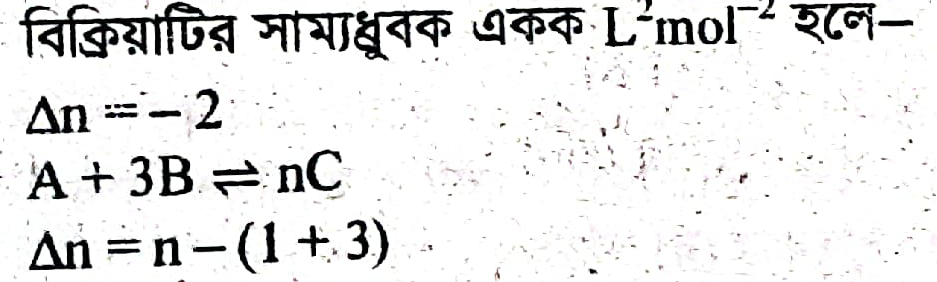 বিক্রিয়াটির সাম্যধ্রুবক একক L²mol⁻² হলে—
Δn = − 2
A + 3B ⇌ nC
Δn = n − (1 + 3)